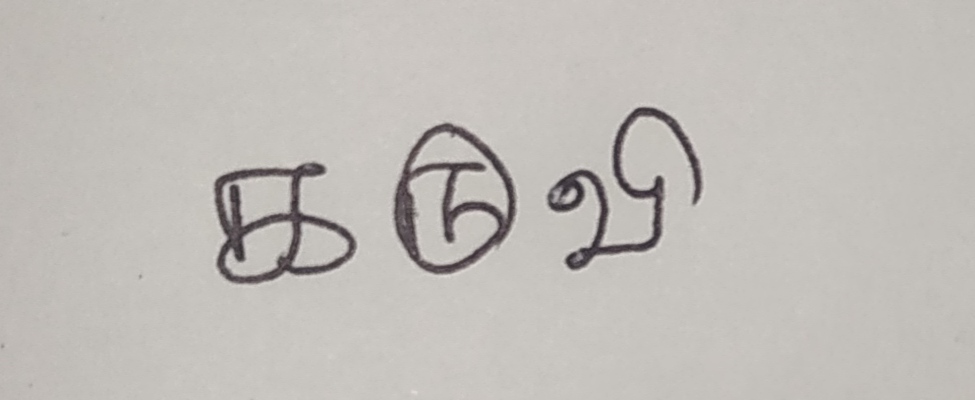 குருவி